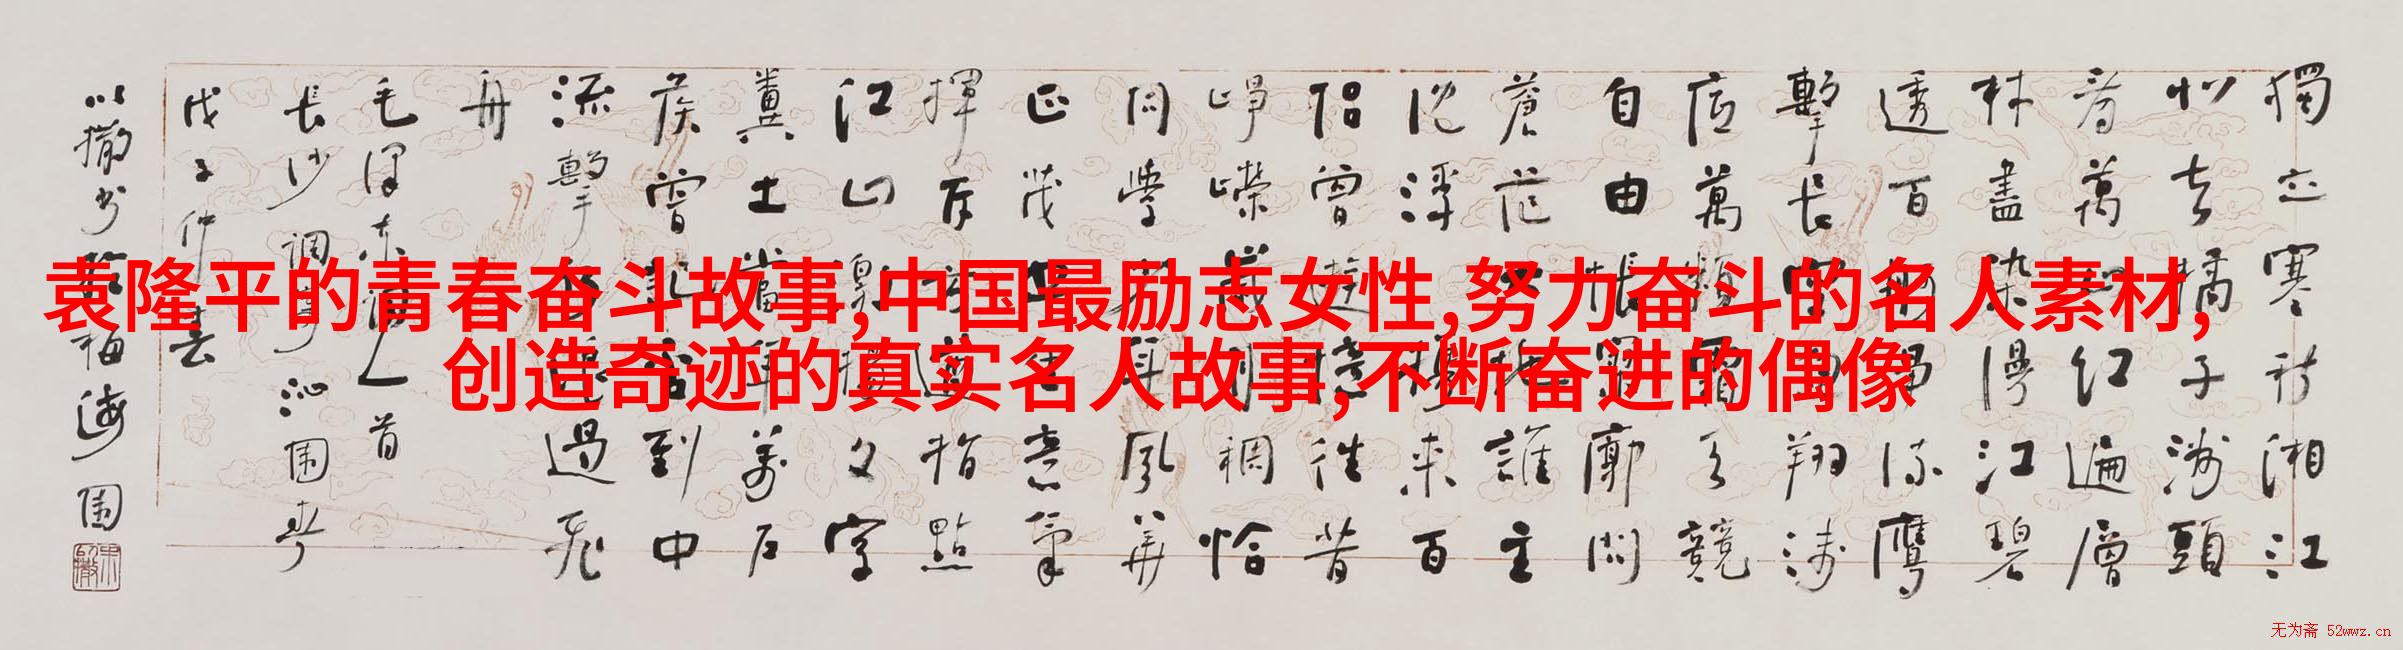 袁隆平的青春奋斗故事,中国最励志女性,努力奋斗的名人素材,
创造奇迹的真实名人故事,不断奋进的偶像
獨立寒秋湘江
北去橘子洲頭
看萬山紅遍層
林盡染漫江碧
透百舸爭流鷹
擊長空魚翔淺
底萬類霜天競
自由悵寥廓問
蒼茫大地誰主
沈浮攜來百
侶曾遊憶往昔
崢嶸歲月稠恰
同學少年風華
正茂書生意氣
揮斥方遒指點
江山激揚文字
糞土當年萬戶
侯曾記否到中
流擊水浪遏飛
舟
毛澤東首
長沙調寄沁園春
戊子仲
以撒書於福海園
无为斋 52wwz.cn